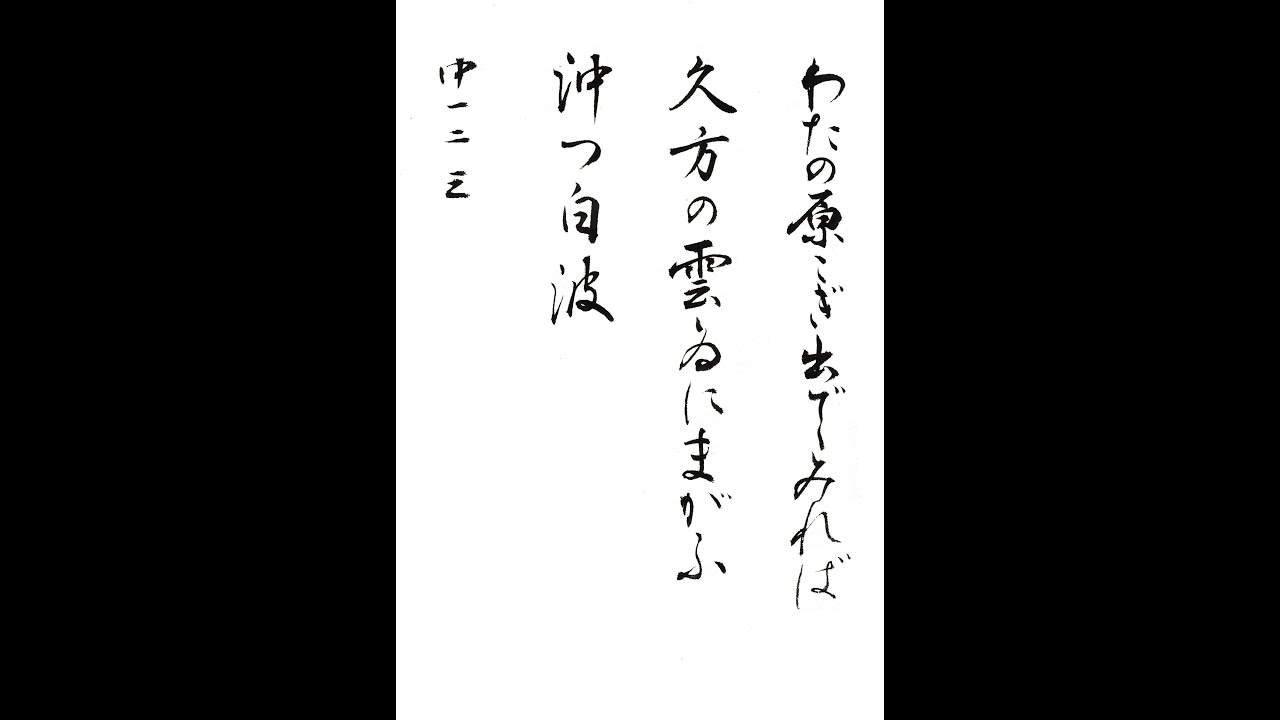 わたの原こぎ出でゝみれば
久方の雲ゐにまがふ
沖つ白波
中一二三